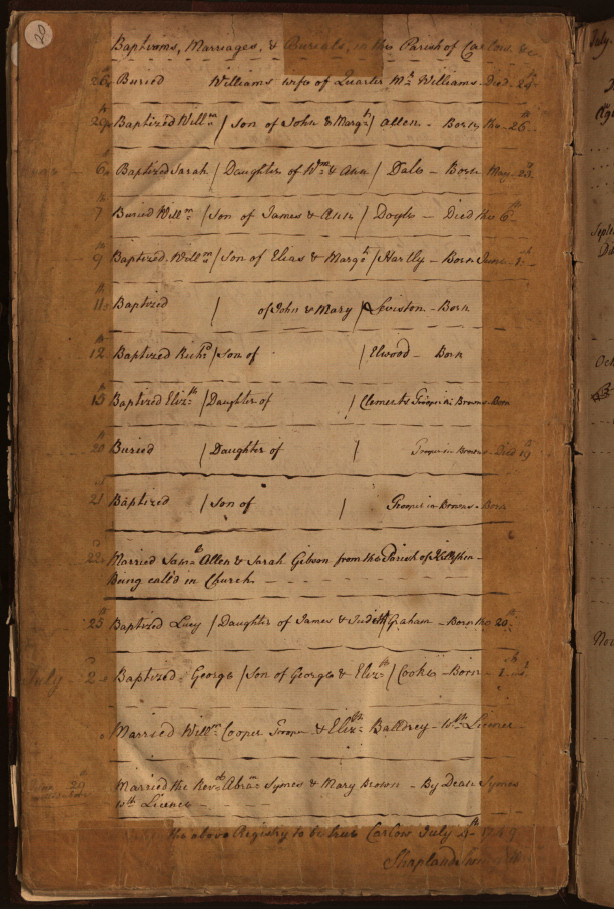 20
Baptisms, Marriages, & Burials, in the Parish of Carlow &c
26th Buried Williams wife of Quarter Mr Williams - Died 24th
29th Baptized Willm / Son of John & Margt / Allen - Born the 26th
6th Baptized Sarah / Daughter of Wm & Ann / Dale - Born May 23d
7th Buried Willm / Son of James & Ann / Doyle - Died the 6th
9th Baptized Willm / Son of Elias & Margt / Hartly - Born June 1st
11th Baptized / of John & Mary / - Born
12th Baptized Richd / Son of / Elwood - Born
15th Baptized Elizth / Daughter of / Clements Troop in Browns - Born
20th Buried / Daughter of / Troop in Browns - Died 19th
21 Baptized / Son of / Trooper in Browns - Born
22d Married Allen & Sarah Gibson from the Parish of
Being call'd in Church
25th Baptized Lucy / Daughter of James & Judith / Graham - Born the 20th
July 2d Baptized George / Son of George & Elizth / Cooke - Born 1st
Married Willm Cooper Trooper & Elizth Balldrey - with Licence
29 Married the Revd Abram Symes & Mary Brown - By Dean Symes
with Licence
the above Registry to be true Carlow July 4th 1749
Shapland
July
Nov